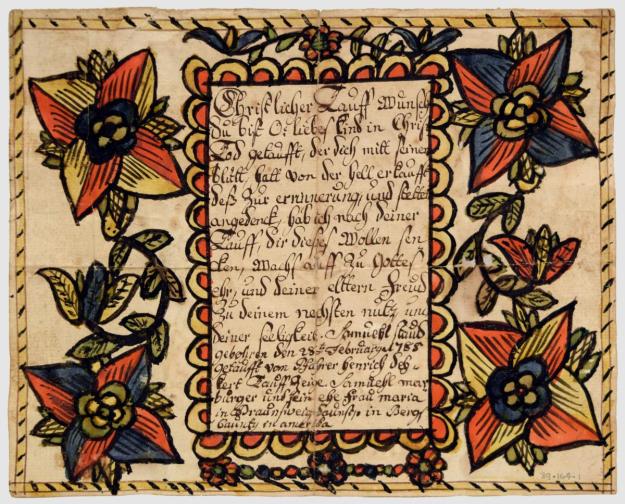 Christlicher Tauff Wunsch
du bist O: liebes Kind in Chris
Tod getaufft, der dich mitt seinen
blutt hatt von der Hell erkaufft
deß Zur erinnerung, und stetten
angedenck, hab ich nach deiner
Tauff, dir dieses Wollen sen
ken, Wachs auff Zu Gottes
ehr, und deiner eltern Freud
Zu deinem nechsten nutz, und
deiner seeligkeit. Samuehl
gebohren den 28t Februarÿ 1785
getaufft von Pfarer Henrich
Tauff Zeige Samuehl mar
burger und sein ehe frau maria
in Braunschweig in Berg
Caunty in america
39.164.1